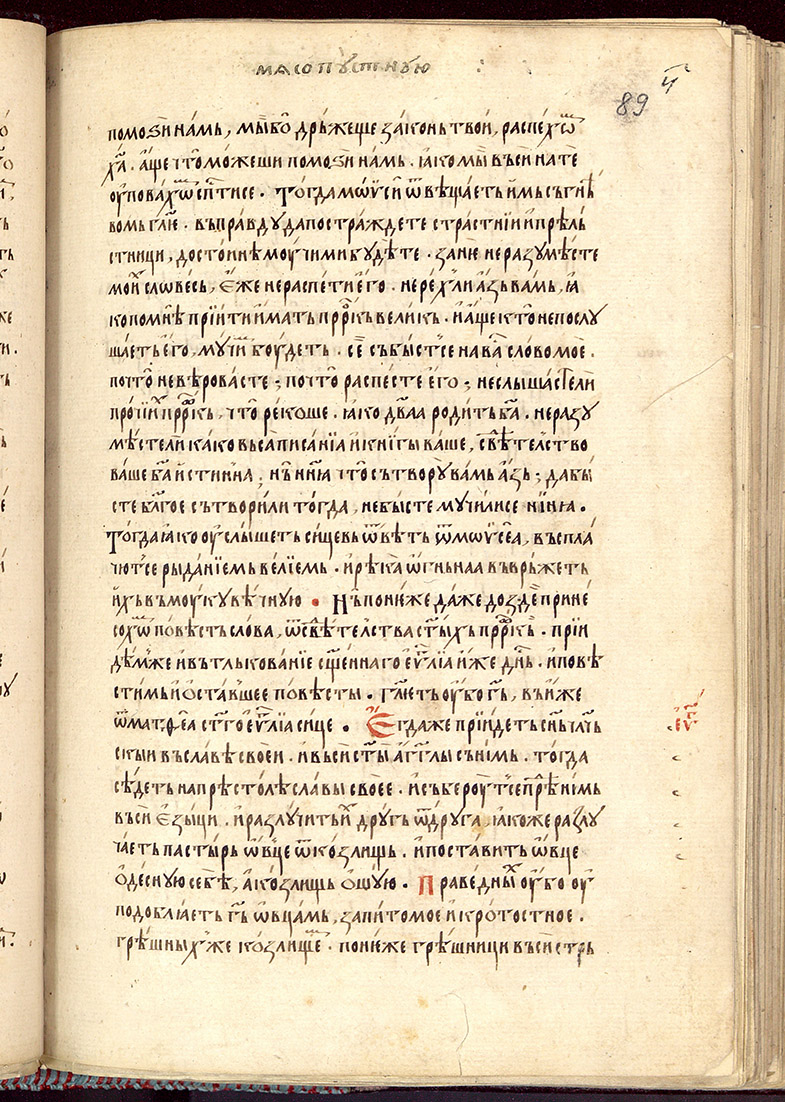 масопꙋстнꙋю :
89 ч҃
помоѕи намь, мы бо дрьжеще законь твои, распехѡⷨ
х҃а. аще что можеши помоѕи намь. ꙗко мы вьси на те
ѹповахѡⷨ сп҃ти се. Тогда мѡѵси ѿвѣщаеть имь сь гнѣ
вомь гл҃е. въ правдꙋ да постраждете страстнїи и прѣль
стници, достоинѣ моучими бꙋдѣте. занѥ не разꙋмѣсте
моиⷯ словесь, еже не распети его. не рехⷧи азь вамь, ꙗ
ко по мнѣ прїити имать прⷪ҇ркь великь. и аще кто не послꙋ
шаеть его, мꙋчиⷨ боудеть. се сьбысⷮ се на ваⷭ слово мое.
почто не вѣровасте; почто распесте его; не слышасте ли
прочїиⷯ прⷪ҇ркь, что рекоше. ꙗко дв҃аа родить б҃а. не разꙋ
мѣсте ли како вьса писанїа и книгы ваше, свⷣѣтелство
ваше б҃а истинна, нь нн҃ꙗ что сьтворꙋ вамь азь; да бы
сте бл҃гое сьтворили тогда, не бысте мꙋчили се нинꙗ.
Тогда ꙗко ѹслышеть сицевь ѿвѣть ѿ мѡѵсеа, вьспла
чютⷭ се рыданїемь велїемь. и рѣка ѡгньнаа вьврьжеть
ихь вь моукꙋ вѣчнꙋю. Нь понѥже даже до здⷣе прине
сохѡⷨ повѣсть слова, ѿ свⷣѣтелства ст҃ыхь прⷪ҇ркь. прїи
дѣмⷤже и вь тлькованїе сщ҃еннаго еѵⷢ҇лїа иже днⷭ҇ь. и повѣ
стимь и оставшее повѣсты. гл҃еть оубо г҃ь, вь иже
ѿ матѳеа ст҃го еѵⷢ҇лїа сице. Егда же прїидеть сн҃ь чл҃чь еѵⷢ҇
скыи вь славѣ своеи. и вьси ст҃ыи агг҃лы сь нимь. тогда
сѣдеть на прѣстолѣ славы своее. и сьбероутⷭ се прⷣѣ нимь
вьси езыци. и разлꙋчить иⷯ дрꙋгь ѿ дрꙋга, ꙗкоже разлꙋ
чаеть пастырь ѡвце ѿ козлищь. и поставить ѡвце
одеснꙋю себѣ, а козлищь ошꙋю. Праведныⷯ оубо оу
подоблꙗеть г҃ь ѡвцамь, за питомое и кротостное.
грѣшныхⷤ же козлищеⷨ. понѥже грѣшници вьси стрь